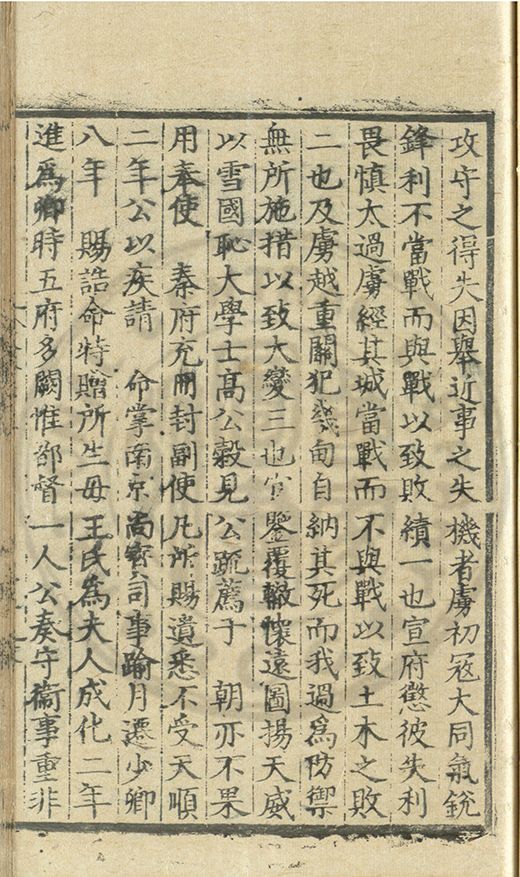 攻守之得失因舉近事之失機者虜初寇大同氣銳
鋒利不當戰而與戰以致敗績一也宣府懲彼失利
畏慎太過虜經其城當戰而不與戰以致土木之敗
二也及虜越重關犯畿甸自納其死而我過為防禦
無所施措以致大變三也宜鑒覆轍懷遠圖揚天威
以雪國恥大學士高公穀見公疏薦于 朝亦不果
用奉使 秦府充冊封副使凡所賜遺悉不受天順
二年公以疾請 命掌南京尚寶司事踰月遷少卿
八年 賜誥命特贈所生母王氏為夫人成化二年
進為卿時五府多闕惟都督一人公奏守衞事重非